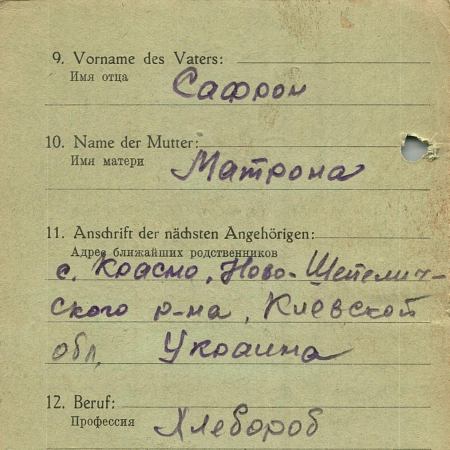 9. Vorname des Vaters:
Имя отца
Сафрон
10. Name der Mutter:
Имя матери
Матрона
11. Anschrift der nächsten Angehörigen:
Адрес ближайших родственников
с. Красно, Ново-Шепелич-
ского р-на, Киевской
обл, Украина
12. Beruf:
Профессия
Хлебороб